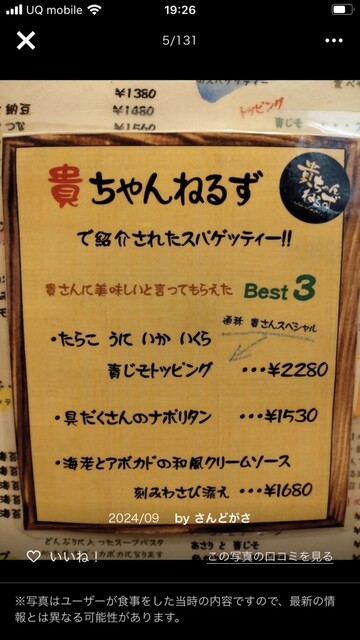 UQ mobile 19:26
5/131
¥1380
¥1480
¥1560
トッピング
青じそ
貴ちゃんねるず
貴ちゃんねるず
で紹介されたスパゲッティー!!
貴さんに美味しいと言ってもらえた Best 3
通称 貴さんスペシャル
・たらこ うに いか いくら
青じそトッピング ・・・¥2280
・具だくさんのナポリタン ・・・¥1530
・海老とアボカドの和風クリームソース
刻みわさび添え ・・・¥1680
2024/09 by さんどがさ
いいね!
この写真の口コミを見る
※写真はユーザーが食事をした当時の内容ですので、最新の情
報とは異なる可能性があります。